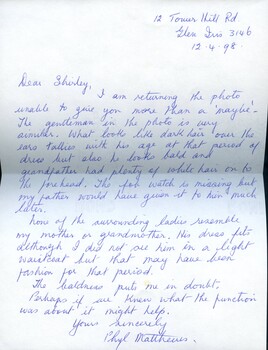 12 Tower Hill Rd
Glen Iris 3146
12.4.98.
Dear Shirley,
I am returning the photo
unable to give you more than a 'maybe'.
The gentleman in the photo is very
similar. What look like dark hair over the
ears tallies with his age at that period of
dress but also he looks bald and
grandfather had plenty of white hair on to
the forehead. The fob watch is missing but
my father would have given it to him much
later.
None of the surrounding ladies resemble
my mother or grandmother. His dress fits
although I did not see him in a light
waistcoat but that may have been
fashion for that period.
The baldness puts me in doubt.
Perhaps if we knew what the function
was about it might help.
Yours sincerely
Phyl Matthews.